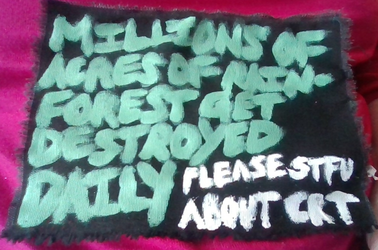 MILLIONS OF
ACRES OF RAIN-
FOREST GET
DESTROYED
DAILY
PLEASE STFU
ABOUT CRT